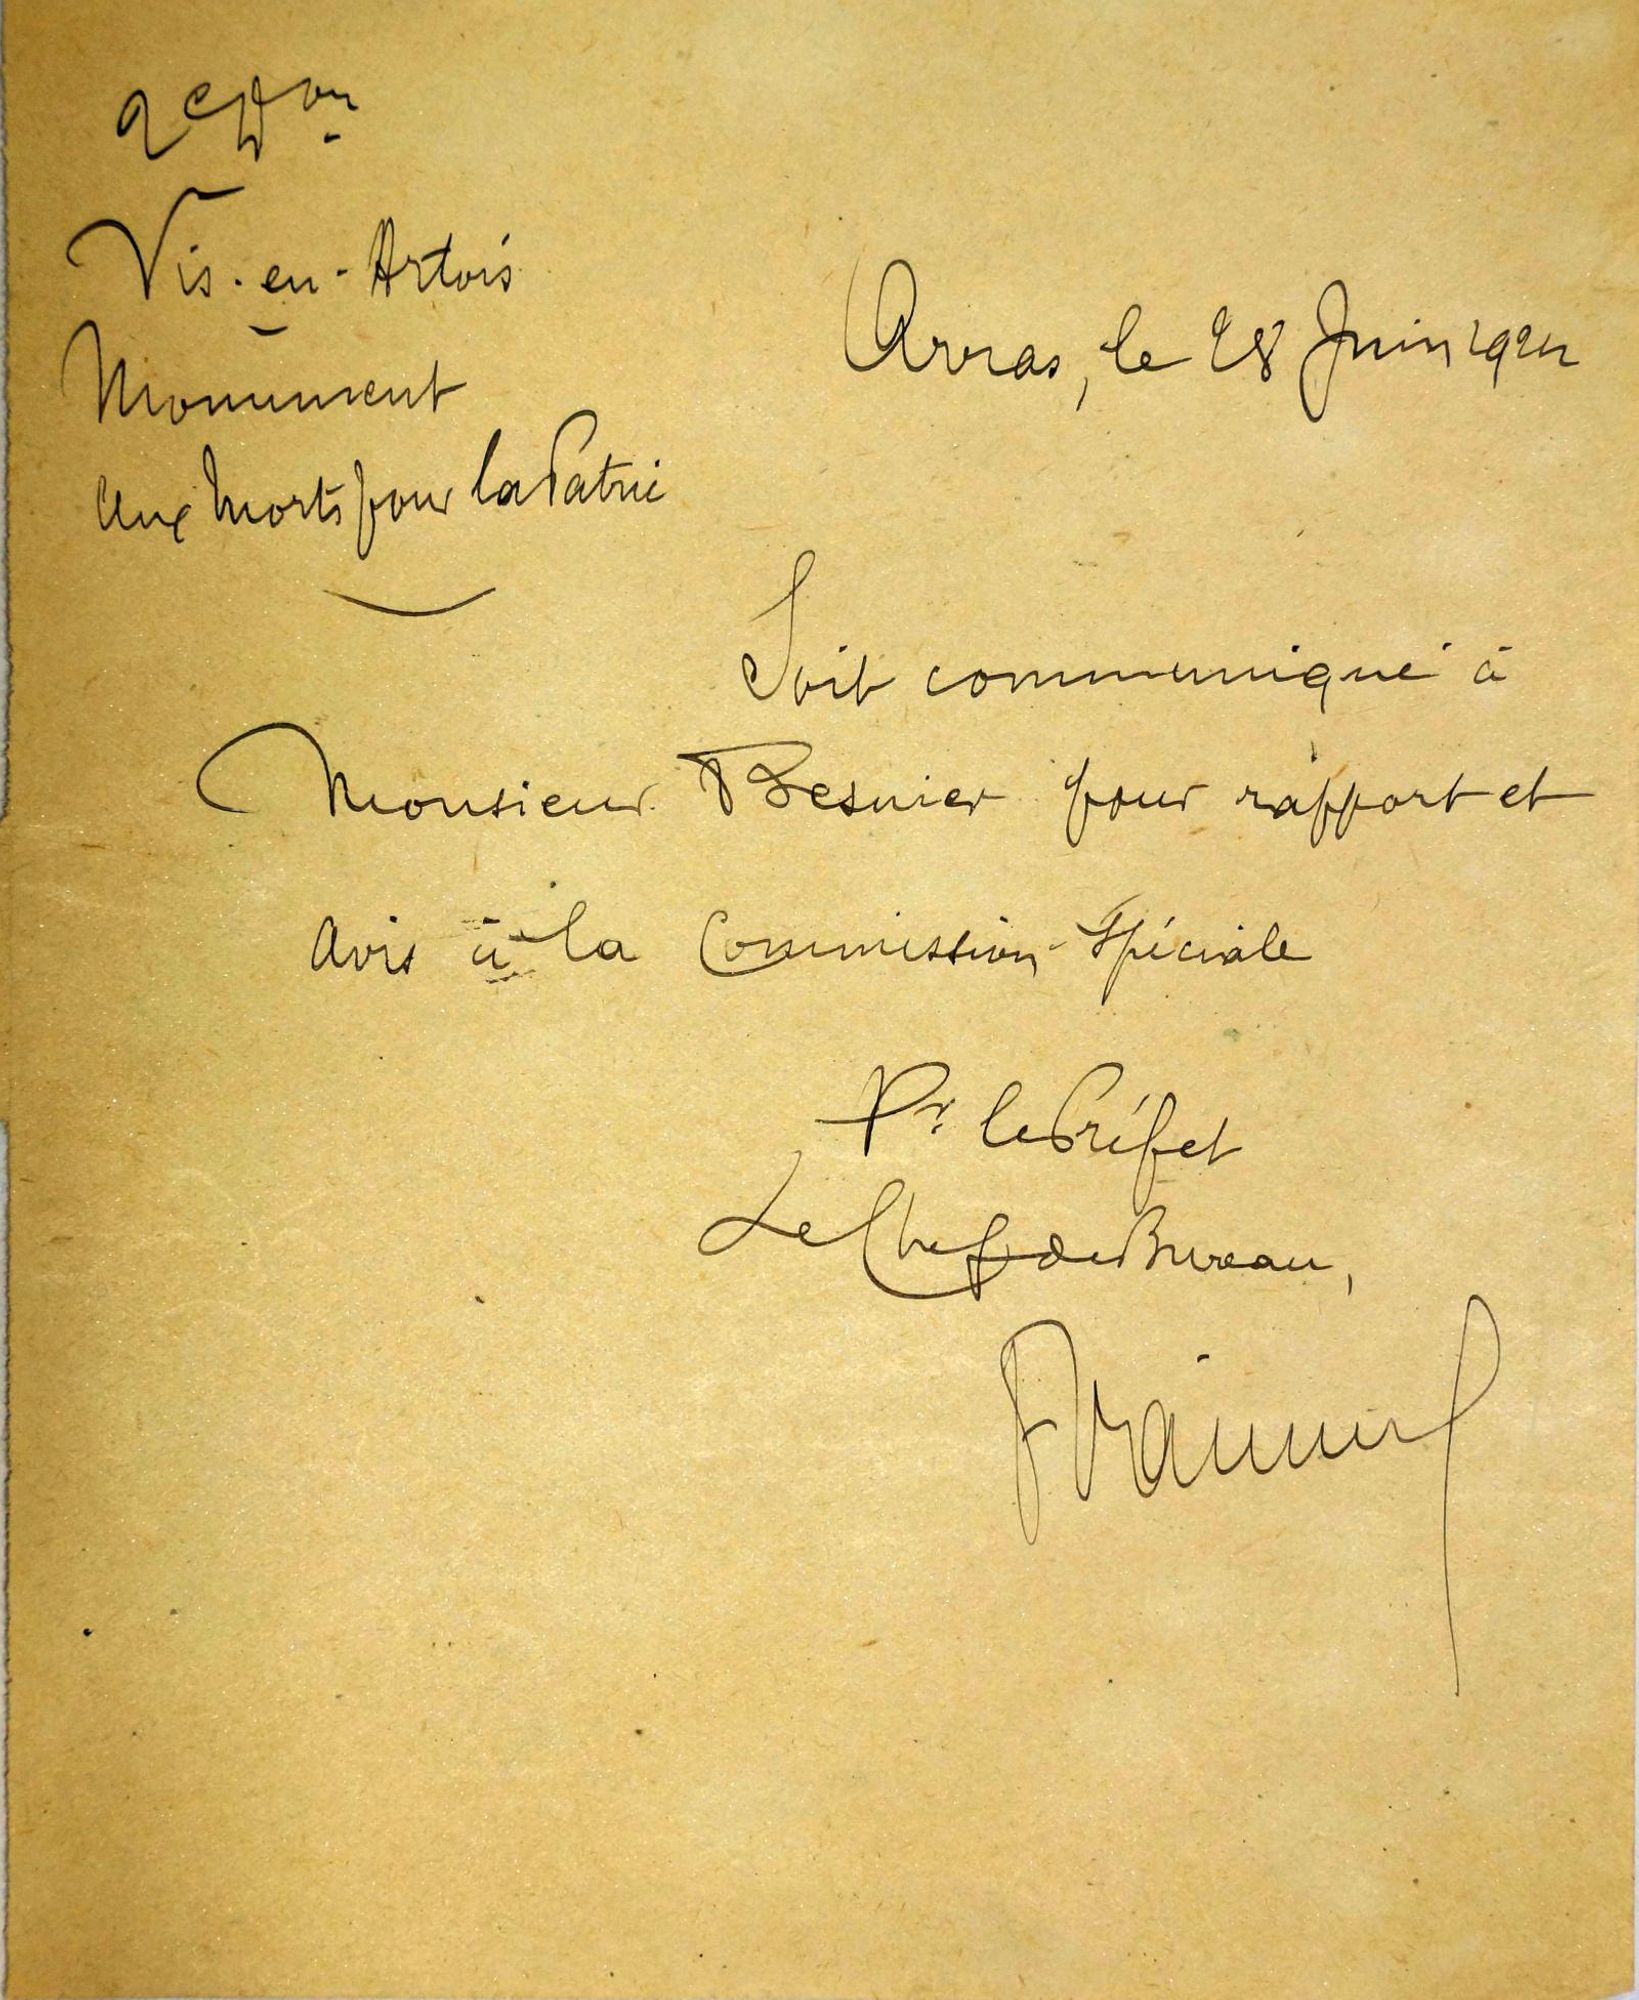 Vis-en-Artois
Monument
aux Morts pour la Patrie
Arras, le 28 Juin
Soit communiqué à
Monsieur Besnier pour rapport et
avis à la Commission Spéciale
Pr. le Préfet
Le Chef de Bureau,